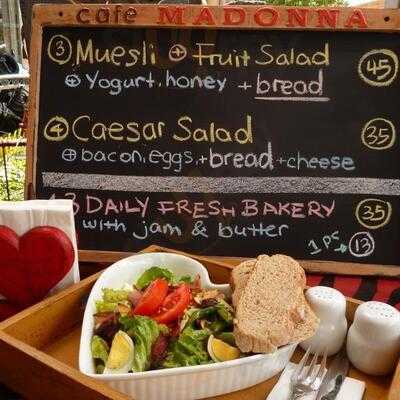 cafe MADONNA
③ Muesli + Fruit Salad 45
+ Yogurt, honey + bread
④ Caesar Salad 35
+ bacon, eggs, + bread + cheese
DAILY FRESH BAKERY 35
with jam & butter
1 pc → 13